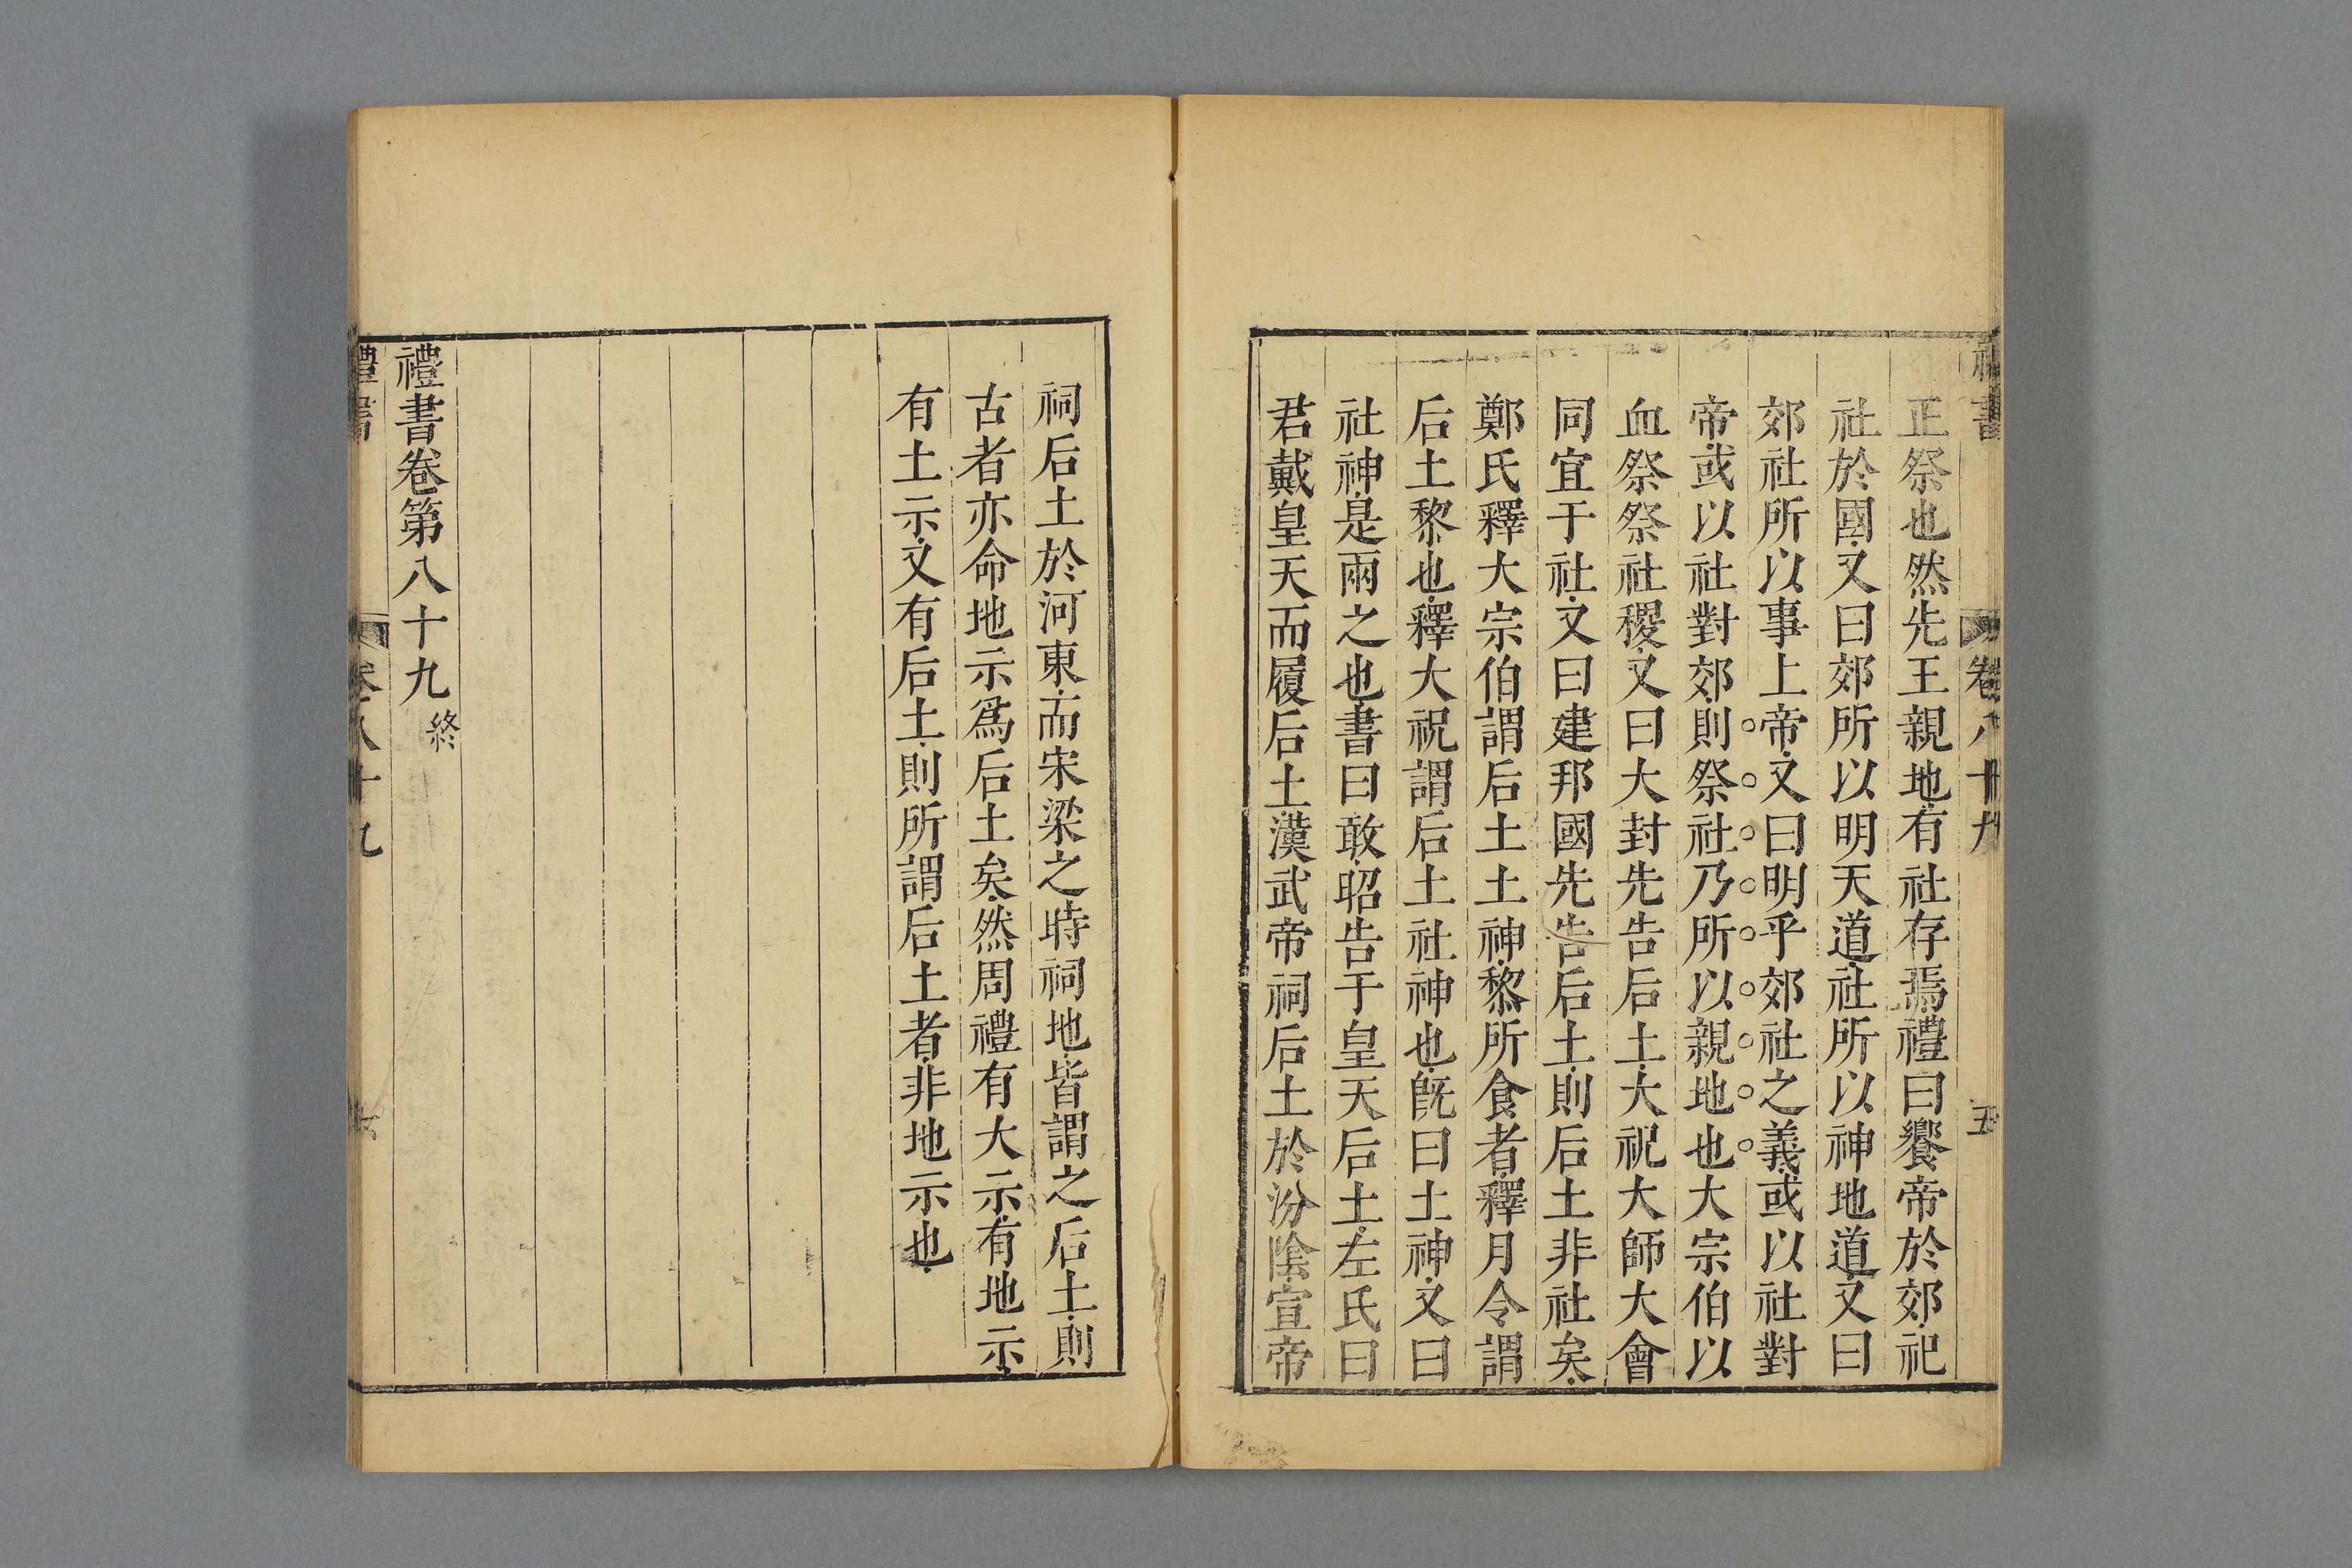 正祭也然先王親地有社存焉禮曰饗帝於郊祀
社於國又曰郊所以明天道社所以神地道又曰
郊社所以事上帝又曰明乎郊社之義或以社對
帝或以社對郊則祭社乃所以親地也大宗伯以
血祭祭社稷又曰大封先告后土大祝大師大會
同宜于社又曰建邦國先告后土則后土非社矣
鄭氏釋大宗伯謂后土土神黎所食者釋月令謂
后土黎也釋大祝謂后土社神也旣曰土神又曰
社神是兩之也書曰敢昭告于皇天后土左氏曰
君戴皇天而履后土漢武帝祠后土於汾陰宣帝
祠后土於河東而宋梁之時祠地皆謂之后土則
古者亦命地示為后土矣然周禮有大示有地示
有土示又有后土則所謂后土者非地示也
禮書卷第八十九終
禮書 卷八十九 五
禮書 卷八十九